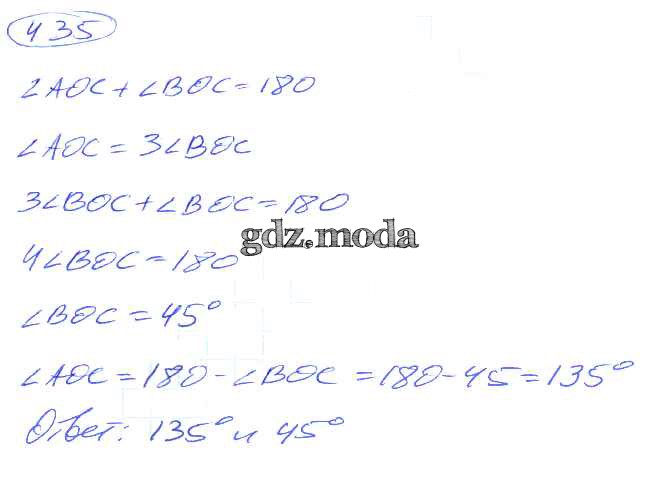 435
∠AOC + ∠BOC = 180
∠AOC = 3∠BOC
3∠BOC + ∠BOC = 180
gdz.moda
4∠BOC = 180
∠BOC = 45°
∠AOC = 180 - ∠BOC = 180 - 45 = 135°
Ответ: 135° и 45°